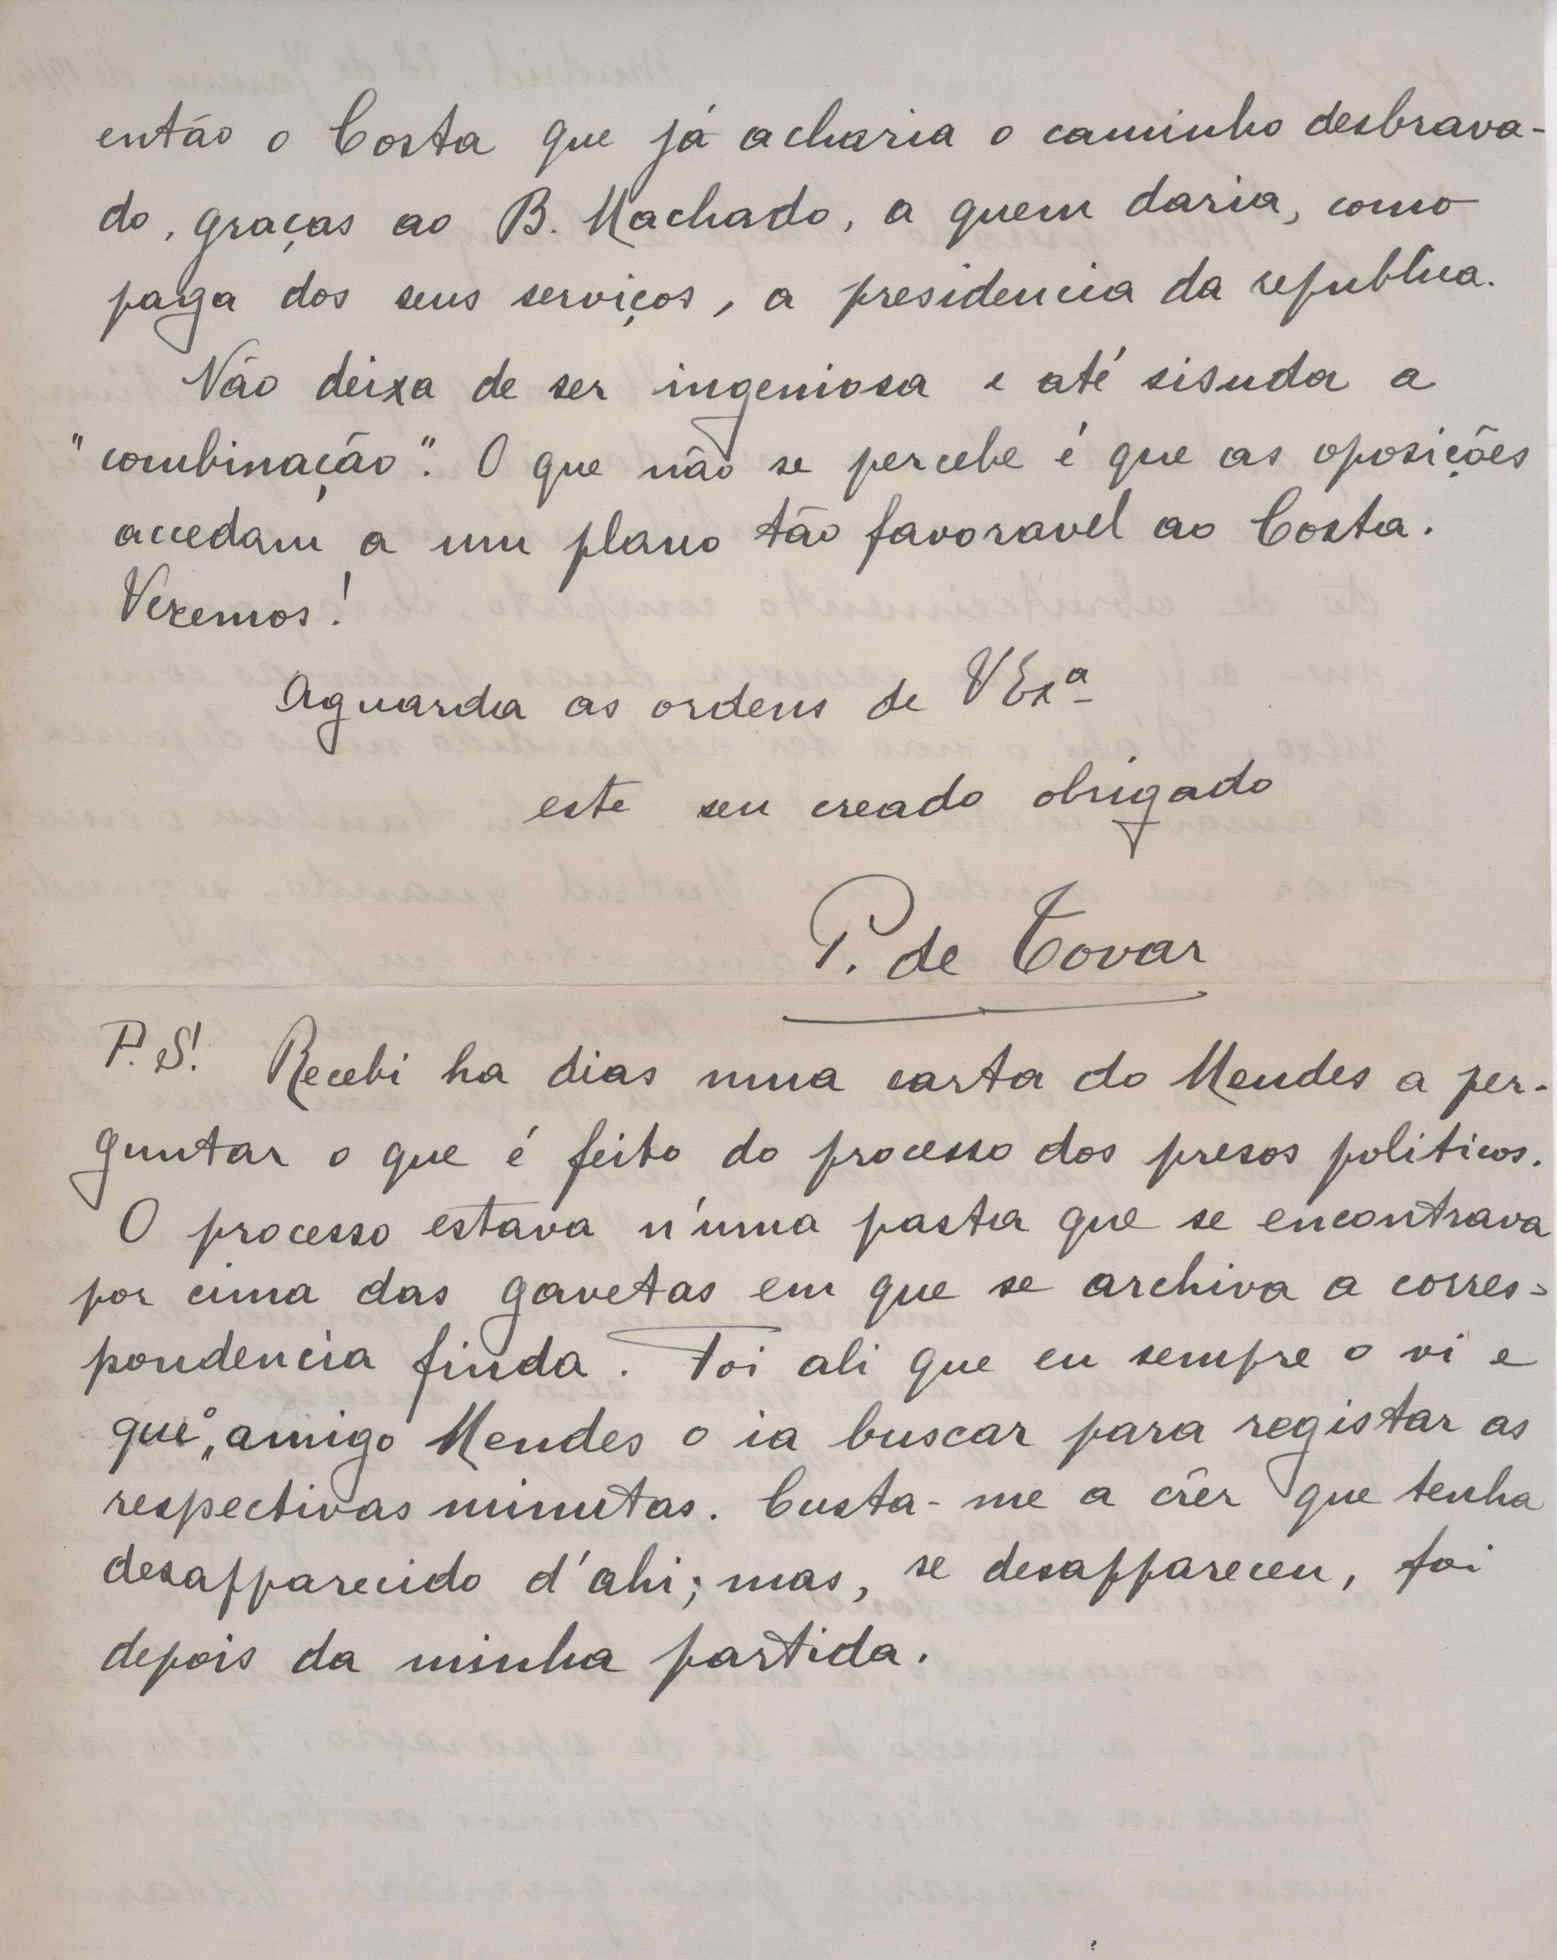 então o Costa que já acharia o caminho desbrava-
do, graças ao B. Machado, a quem daria, como
paga dos seus serviços, a presidencia da republica.
Não deixa de ser ingeniosa e até sisuda a
"combinação". O que não se percebe é que as oposições
accedam a um plano tão favoravel ao Costa.
Veremos!
Aguarda as ordens de V Exª
este seu creado obrigado
P. de Tovar
P. S! Recebi ha dias uma carta do Mendes a per-
guntar o que é feito do processo dos presos politicos.
O processo estava n'uma pasta que se encontrava
por cima das gavetas em que se archiva a corres=
pondencia finda. Foi ali que eu sempre o vi e
que o amigo Mendes o ia buscar para registar as
respectivas minutas. Custa-me a crêr que tenha
desapparecido d'ahi; mas, se desappareceu, foi
depois da minha partida.